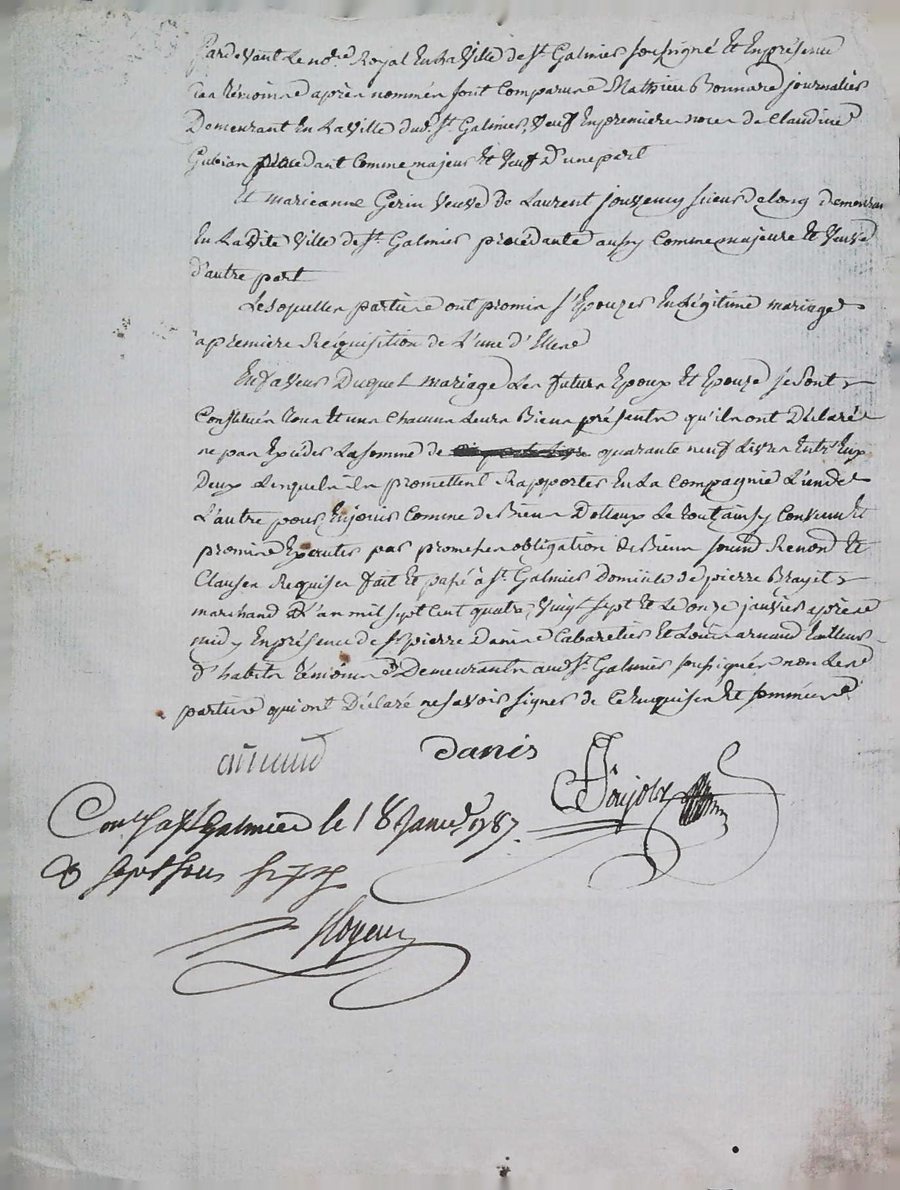 Pardevant Le no.re Royal En La Ville de St Galmier soussigné Et En présence
Des témoins après nommés sont Comparus Mathieu Bonnard journalier
Demeurant En La Ville dud. St Galmier, Veuf En premiere noces de Claudine
Gubian procedant Comme majeur Et Veuf D'une part
Et marieanne Gerin Veuve de Laurent jouvency scieur de long demeurant
En La Dite Ville de St Galmier procédante aussy Comme majeure Et Veuve
D'autre part
Lesquelles parties ont promis s'Epouzer En Légitime mariage
a premiere Réquisition de L'une d'Elles
En faveur Duquel mariage Les futurs Epoux Et Epouze se sont
Constitués Tous Et uns Chacuns Leurs Biens présents qu'ils ont Déclaré
ne pas Excéder La somme de quarante neuf Livres Entr'Eux
Deux Lesquels ils promettent Rapporter En La Compagnie L'un de
L'autre pour En jouir Comme de Biens Dottaux Le tout ainsy Convenu Et
promis Executer par promesses obligation de Biens soumd Renond Et
Clauses Requises fait Et passé à St Galmier Domicile de pierre Brayet
marchand L'an mil sept Cent quatre Vingt sept Et Le onze janvier après
midy En présence de Sr pierre Danis Cabaretier Et Louis arnaud tailleur
d'habits témoins Demeurants aud. St Galmier soussignés non Les
parties qui ont Déclaré ne savoir signer de Ce Requises Et sommées
arnaud danis
Poujolx
Con.lé a St Galmier le 18 Janv. 1787.
sept sous